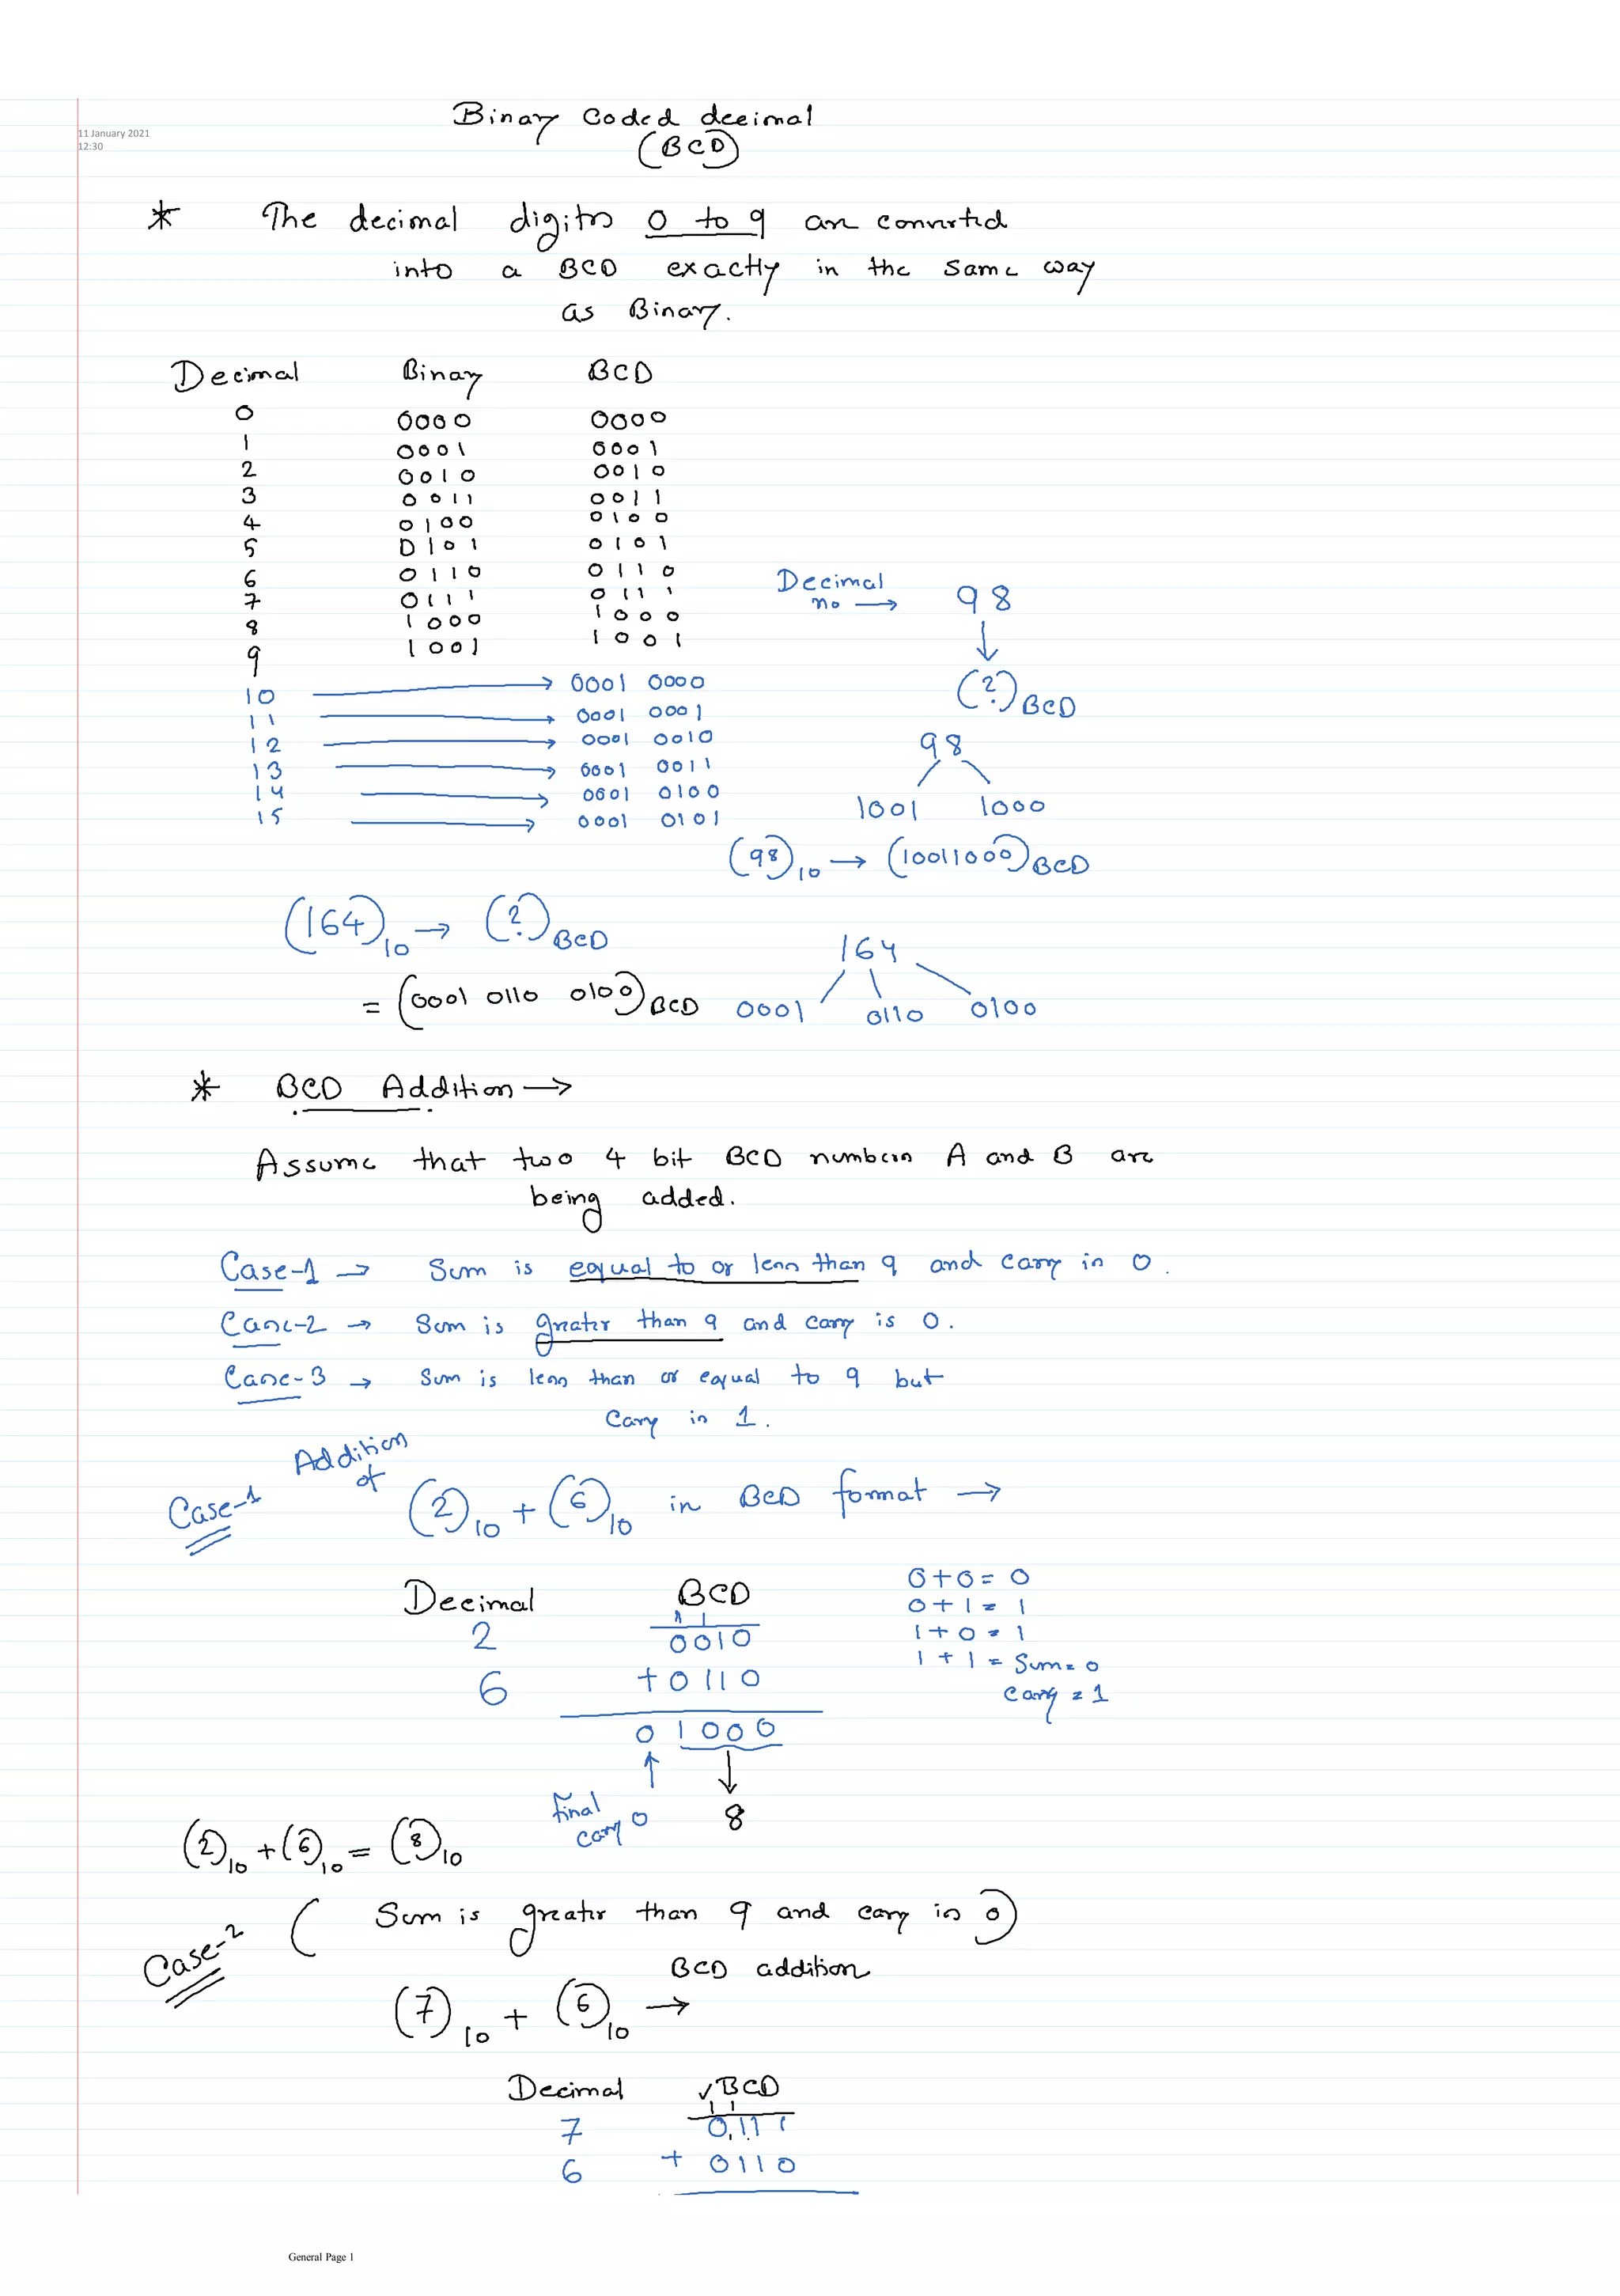 Binary Coded decimal
(BCD)
11 January 2021
12:30
* The decimal digits 0 to 9 are converted
into a BCD exactly in the same way
as Binary.
Decimal Binary BCD
0 0000 0000
1 0001 0001
2 0010 0010
3 0011 0011
4 0100 0100
5 0101 0101
6 0110 0110
7 0111 0111
8 1000 1000
9 1001 1001
10 → 0001 0000
11 → 0001 0001
12 → 0001 0010
13 → 0001 0011
14 → 0001 0100
15 → 0001 0101
Decimal
no → 98
↓
(?)BCD
98
1001 1000
(98)10 → (10011000)BCD
(164)10 → (?)BCD
= (0001 0110 0100)BCD
164
0001 0110 0100
* BCD Addition →
Assume that two 4 bit BCD numbers A and B are
being added.
Case-1 → Sum is equal to or less than 9 and carry is 0.
Case-2 → Sum is greater than 9 and carry is 0.
Case-3 → Sum is less than or equal to 9 but
carry is 1.
Case-1 Addition of (2)10 + (6)10 in BCD format →
Decimal BCD
1 1
2 0010
6 + 0110
0 1000
↑ ↓
final carry 0 8
0+0= 0
0+1= 1
1+0= 1
1+1= Sum= 0
carry = 1
(2)10 + (6)10 = (8)10
Case-2 ( Sum is greater than 9 and carry is 0)
BCD addition
(7)10 + (6)10 →
Decimal √BCD
1 1
7 0111
6 + 0110
General Page 1